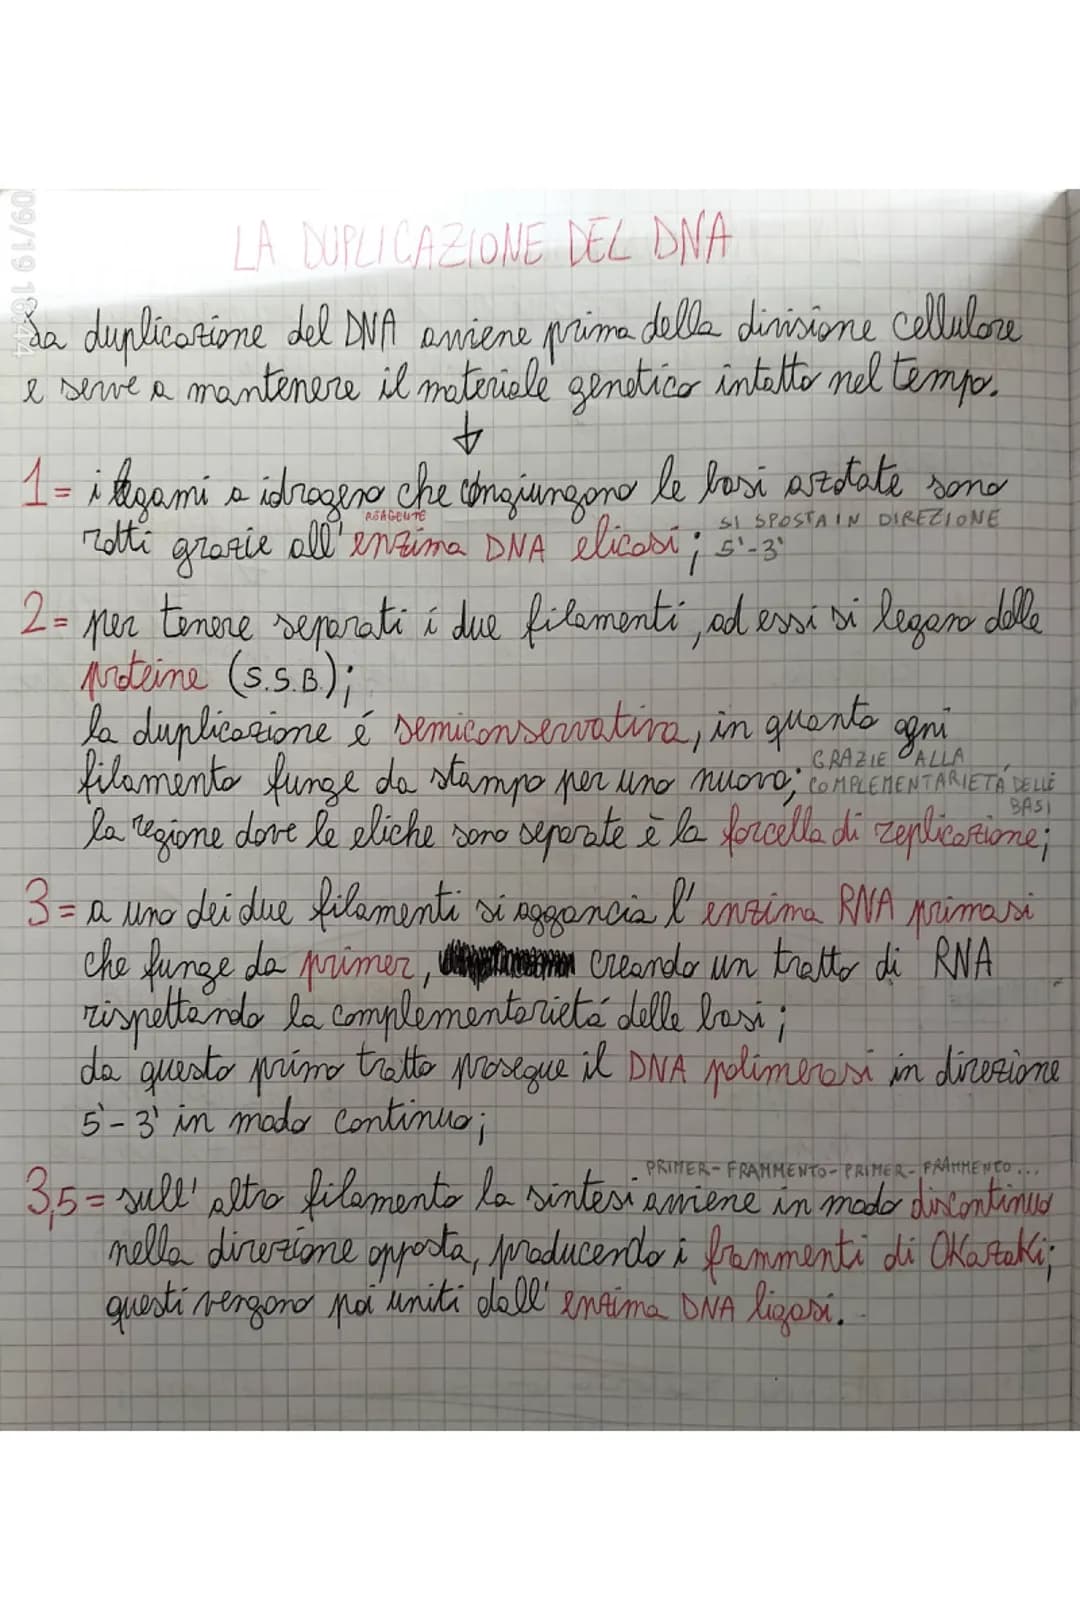 09/19 18:44
LA DUPLICAZIONE DEL DNA
La duplicazione del DNA avviene prima della divisione cellulare
e serve a mantenere il materiale genetico intatto nel tempo.
↓
1= i legami a idrogeno che congiungono le basi azotate sono
REAGENTE SI SPOSTA IN DIREZIONE
rotti grazie all'enzima DNA elicasi; 5'-3'
2= per tenere separati i due filamenti, ad essi si legano delle
proteine (S.S.B.);
la duplicazione é semiconservativa, in quanto ogni
GRAZIE ALLA
filamento funge da stampo per uno nuovo; COMPLEMENTARIETÁ DELLE
BASI
la regione dove le eliche sono separate è la forcella di replicazione;
3= a uno dei due filamenti si aggancia l'enzima RNA primasi
che funge da primer, creando un tratto di RNA
rispettando la complementarietá delle basi;
da questo primo tratto prosegue il DNA polimerasi in direzione
5'-3' in modo continuo;
PRIMER-FRAMMENTO-PRIMER-FRAMMENTO...
3,5= sull'altro filamento la sintesi avviene in modo discontinuo
nella direzione opposta, producendo i frammenti di Okazaki;
questi vengono poi uniti dall'enzima DNA ligasi.